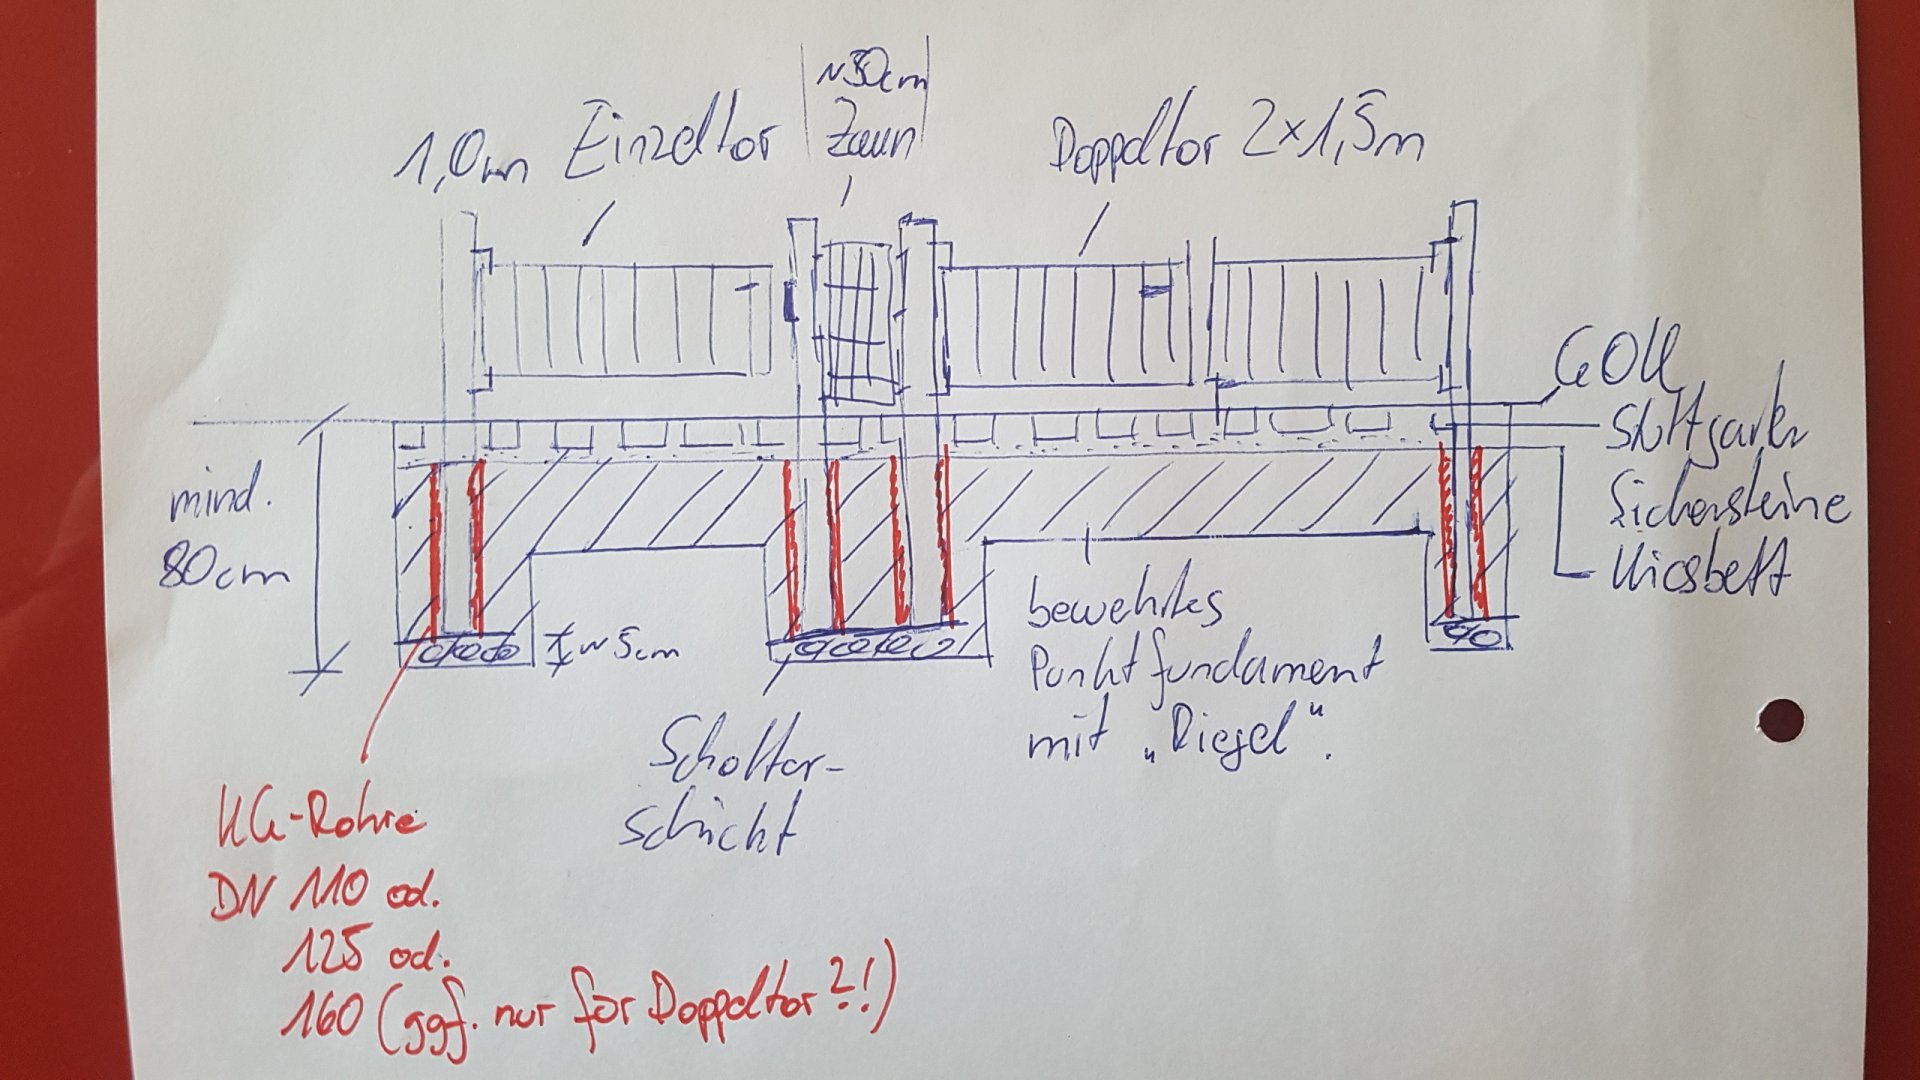 1,0m Einzeltor
~30cm
Zaun
Doppeltor 2×1,5m
GOK
Stuttgarter
Sickersteine
Kiesbett
mind.
80cm
~5cm
bewehrtes
Punktfundament
mit „Riegel".
Schotter-
schicht
KG-Rohre
DN 110 od.
125 od.
160 (ggf. nur für Doppeltor?!)